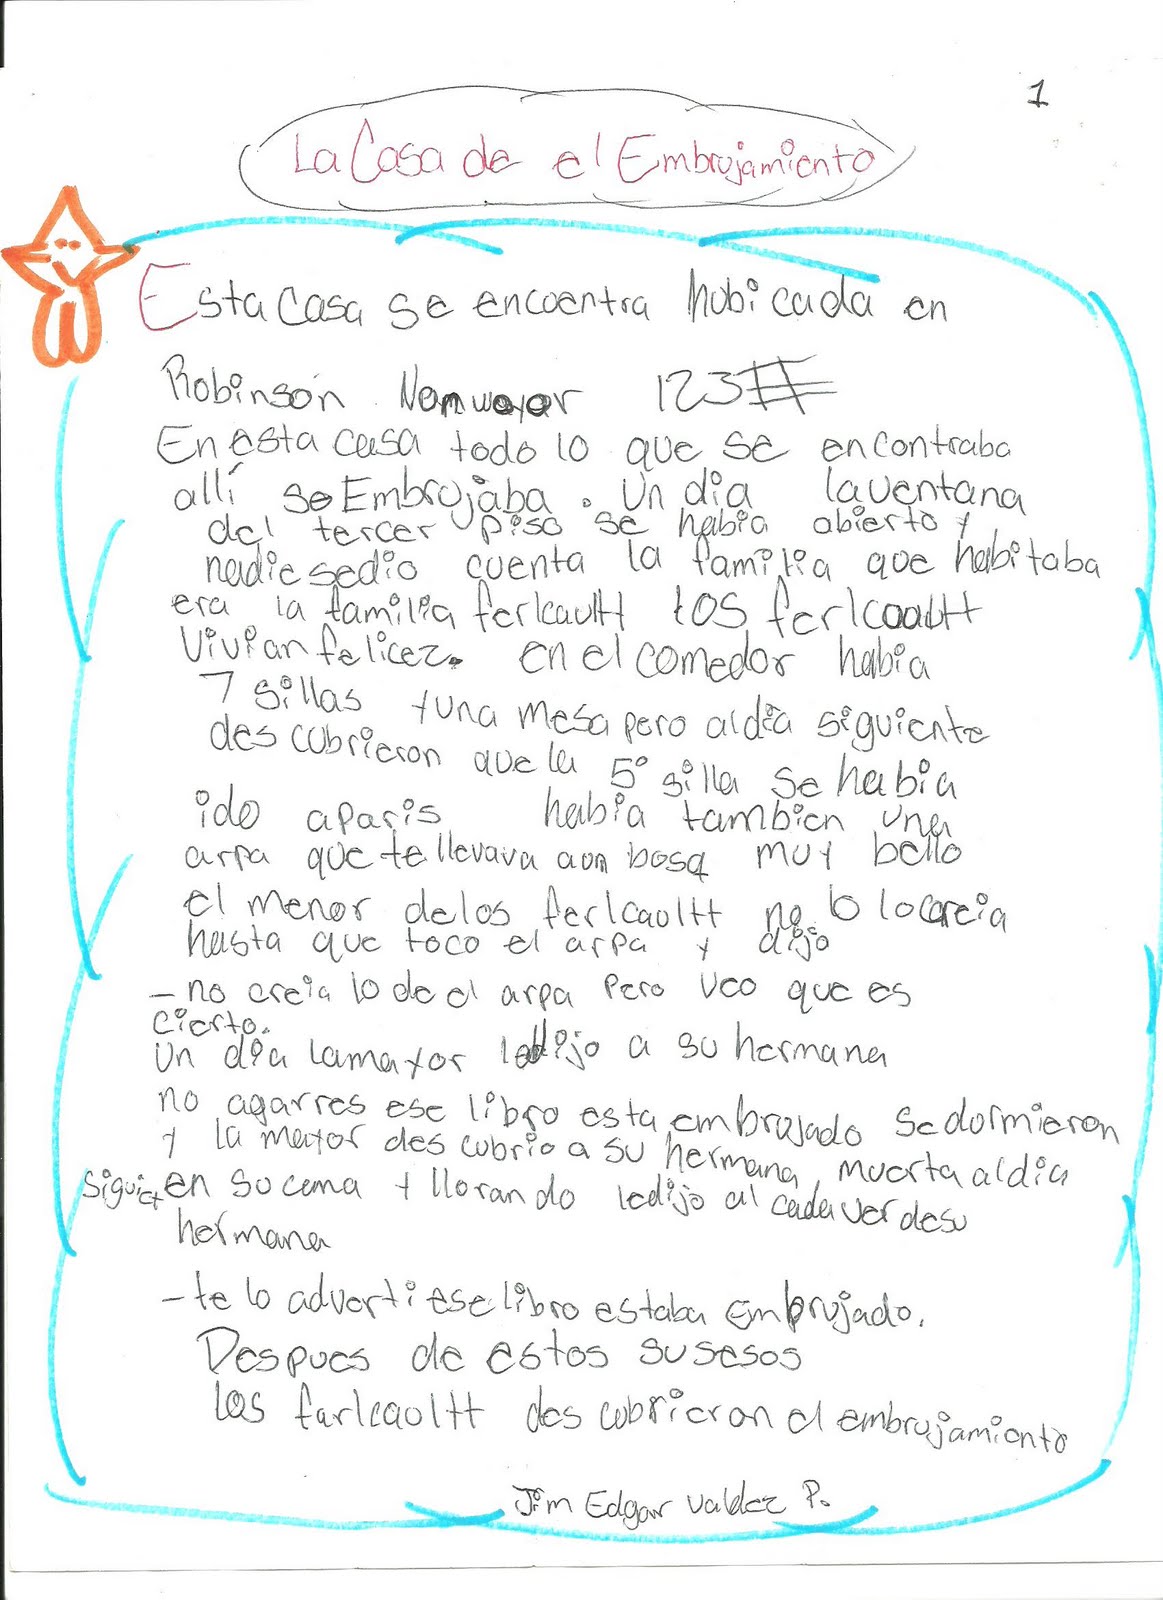 1
La Casa de el Embrujamiento
Esta Casa se encuentra hubicada en
Robinson 123#
En esta casa todo lo que se encontraba
allí se Embrujaba. Un dia la ventana
del tercer piso se habia abierto y
nadie sedio cuenta la familia que habitaba
era la familia ferlcaultt los ferlcaoultt
Vivian felicez. en el comedor habia
7 sillas y una mesa pero al dia siguiente
descubrieron que la 5° silla se habia
ido a paris habia tambien una
arpa que te llevava a un bosq muy bello
el menor delos ferlcaoltt no lo creia
hasta que toco el arpa y dijo
- no creia lo de el arpa pero veo que es
cierto.
Un dia la mayor le dijo a su hermana
no agarres ese libro esta embrujado se dormieron
y la mayor descubrio a su hermana muerta al dia
siguiet en su cama y llorando ledijo al cadaver desu
hermana
- te lo adverti ese libro estaba embrujado.
Despues de estos susesos
los farlcaoltt descubrieron el embrujamiento
Jim Edgar Valdez P.